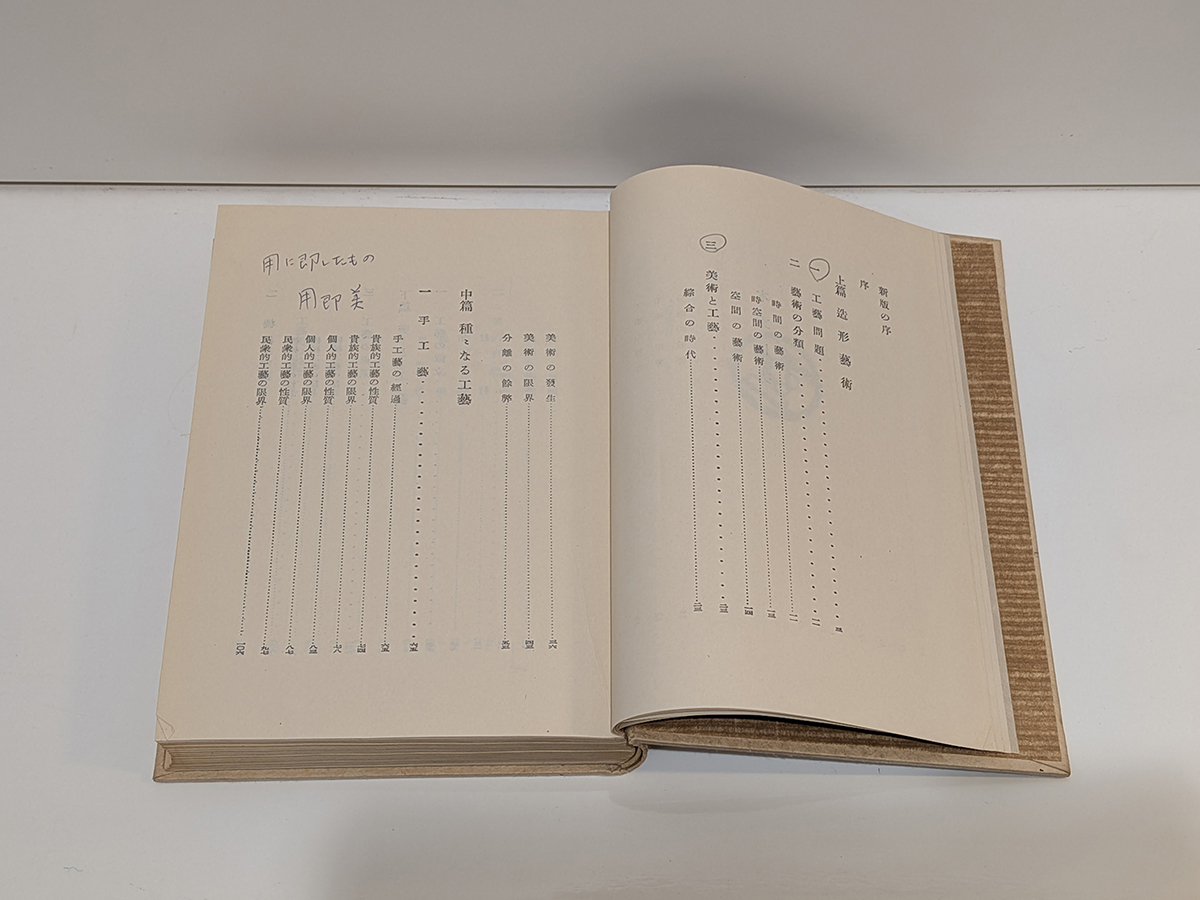 新版の序
序
上篇 造形藝術
一 工藝問題……三
二 藝術の分類……一一
時間の藝術……一一
時空間の藝術……一三
空間の藝術……一四
三 美術と工藝……
綜合の時代……
美術の發生……三六
美術の限界……
分離の餘弊……
中篇 種〻なる工藝
一 手工藝……六五
手工藝の經過……六五
貴族的工藝の性質……七四
貴族的工藝の限界……七八
個人的工藝の性質……八三
個人的工藝の限界……八七
民衆的工藝の性質……九七
民衆的工藝の限界……一〇六
用に即したもの
用即美